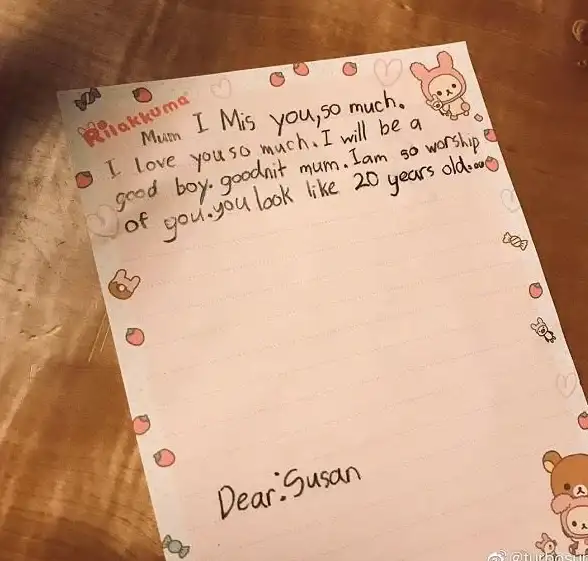 Rilakkuma
Mum I Mis you,so much.
I love you so much.I will be a
good boy. goodnit mum.I am so worship
of you.you look like 20 years old.
Dear:Susan